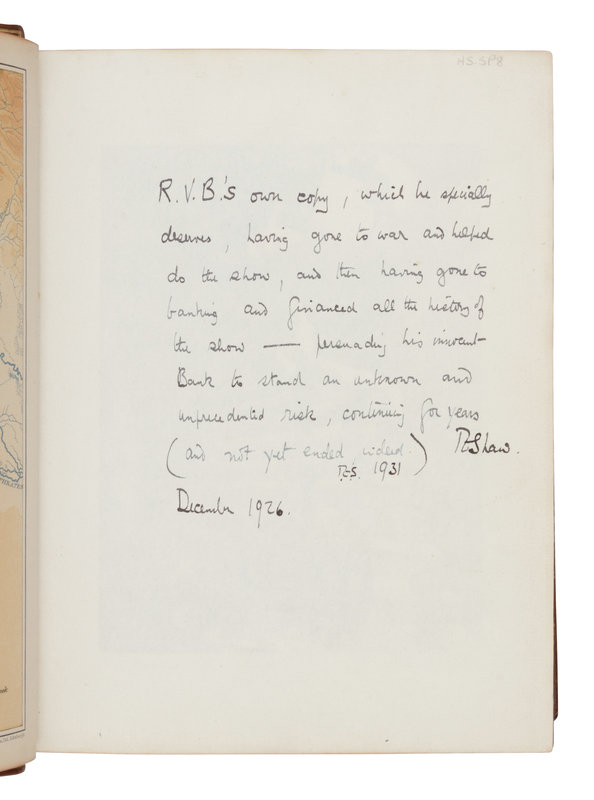 HS.SP8
R.V.B.'s own copy, which he specially
deserves, having gone to war and helped
do the show, and then having gone to
banking and financed all the history of
the show — persuading his innocent
Bank to stand an unknown and
unprecedented risk, continuing for years
(and not yet ended, indeed.) TEShaw.
T.E.S. 1931
December 1926.
PHRATES